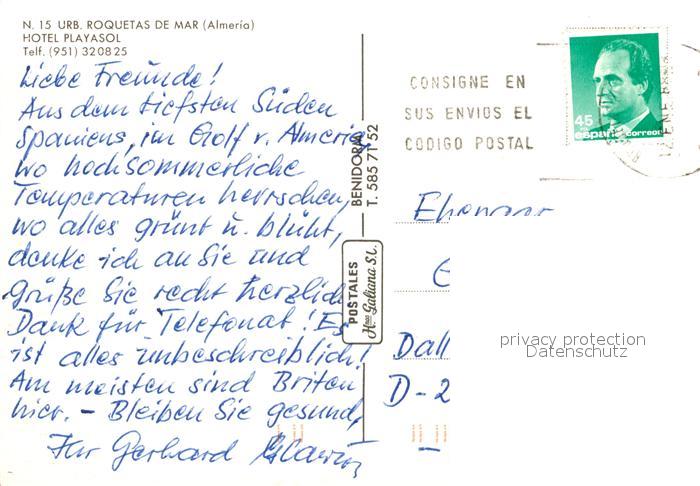 N. 15 URB. ROQUETAS DE MAR (Almería)
HOTEL PLAYASOL
Telf. (951) 320825
Liebe Freunde!
Aus dem tiefsten Süden
Spaniens, im Golf v. Almeria,
wo hochsommerliche
Temperaturen herrschen,
wo alles grünt u. blüht,
denke ich an Sie und
grüße Sie recht herzlich.
Dank für Telefonat! Es
ist alles unbeschreiblich!
Am meisten sind Briten
hier. - Bleiben Sie gesund,
Ihr Gerhard
BENIDORM
T. 585 71 52
POSTALES
Hnos Galiana S.L.
CONSIGNE EN
SUS ENVIOS EL
CODIGO POSTAL
45
españa correos
Dall
D-2
privacy protection
Datenschutz